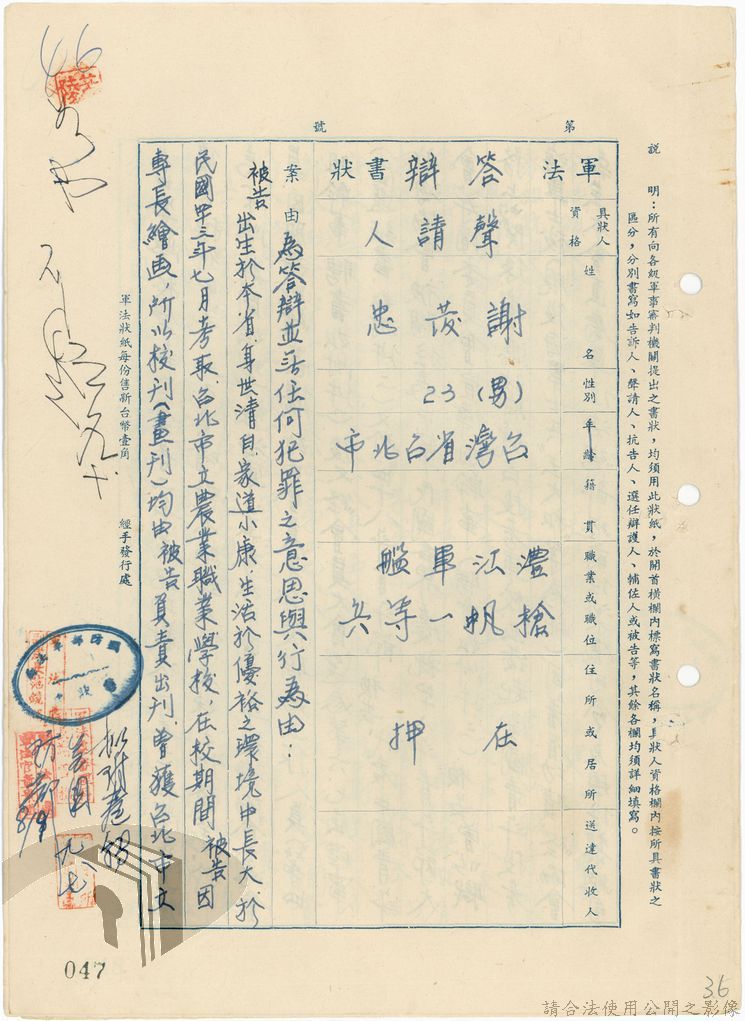 說　明：所有向各級軍事審判機關提出之書狀，均須用此狀紙，於開首橫欄內標寫書狀名稱，具狀人資格欄內按所具書狀之
區分，分別書寫如告訴人、聲請人、抗告人、選任辯護人、輔佐人或被告等，其餘各欄均須詳細填寫。
第　　　號
軍法答辯書狀
具狀人資格
聲請人
姓名
謝發忠
性別
年齡
(男) 23
籍貫
台灣省台北市
職業或職位
澧江軍艦
槍帆一等兵
住所或居所
在押
送達代收人
案由 為答辯並無任何犯罪之意思與行為由：
被告 出生於本省，身世清白，家道小康，生活於優裕之環境中長大，於
民國四十三年七月考取台北市立農業職業學校，在校期間被告因
專長繪画，所以校刊（畫刊）均由被告負責出刊，曾獲台北市立
軍法狀紙每份售新台幣壹角
經手發行處
擬附卷
047
36
請合法使用公開之影像